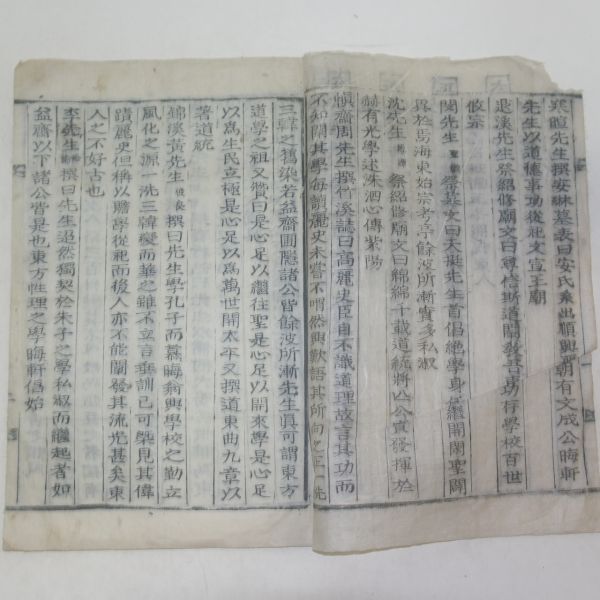 寒暄先生撰安琳墓表曰安氏系出順興麗朝有文成公晦軒
先生以道德事功從祀文宣王廟
退溪先生祭紹修廟文曰尊信斯道開發言功存學校百世
攸宗
閔先生祭墓文曰天挺先生首倡絶學身繼開閑聖闢
異於焉海東始崇考亭餘波所漸實多私淑
沈先生祭紹修廟文曰綿綿千載道統將公實發揮於
赫有光學述洙泗心傳紫陽
愼齋周先生撰竹溪誌曰高麗史臣自不識道理故言其功而
不知闡其學每讀麗史未嘗不喟然興歎語其所向之正先
三韓之舊染若益齋圃隱諸公皆餘波所漸先生眞可謂東方
道學之祖又贊曰是心足以繼往聖是心足以開來學是心足
以爲生民立極是心足以爲萬世開太平又撰道東曲九章以
著道統
錦溪黃先生俊良撰曰先生學孔子而慕晦翁興學校之勤立
風化之源一洗三韓變而華之雖不立言垂訓已可槩見其偉
蹟麗史但稱以贍學從祀而後人亦不能闡發其流光甚矣東
人之不好古也
李先生撰曰先生逌然獨契於朱子之學私淑而繼起者如
益齋以下諸公皆是也東方性理之學晦軒倡始